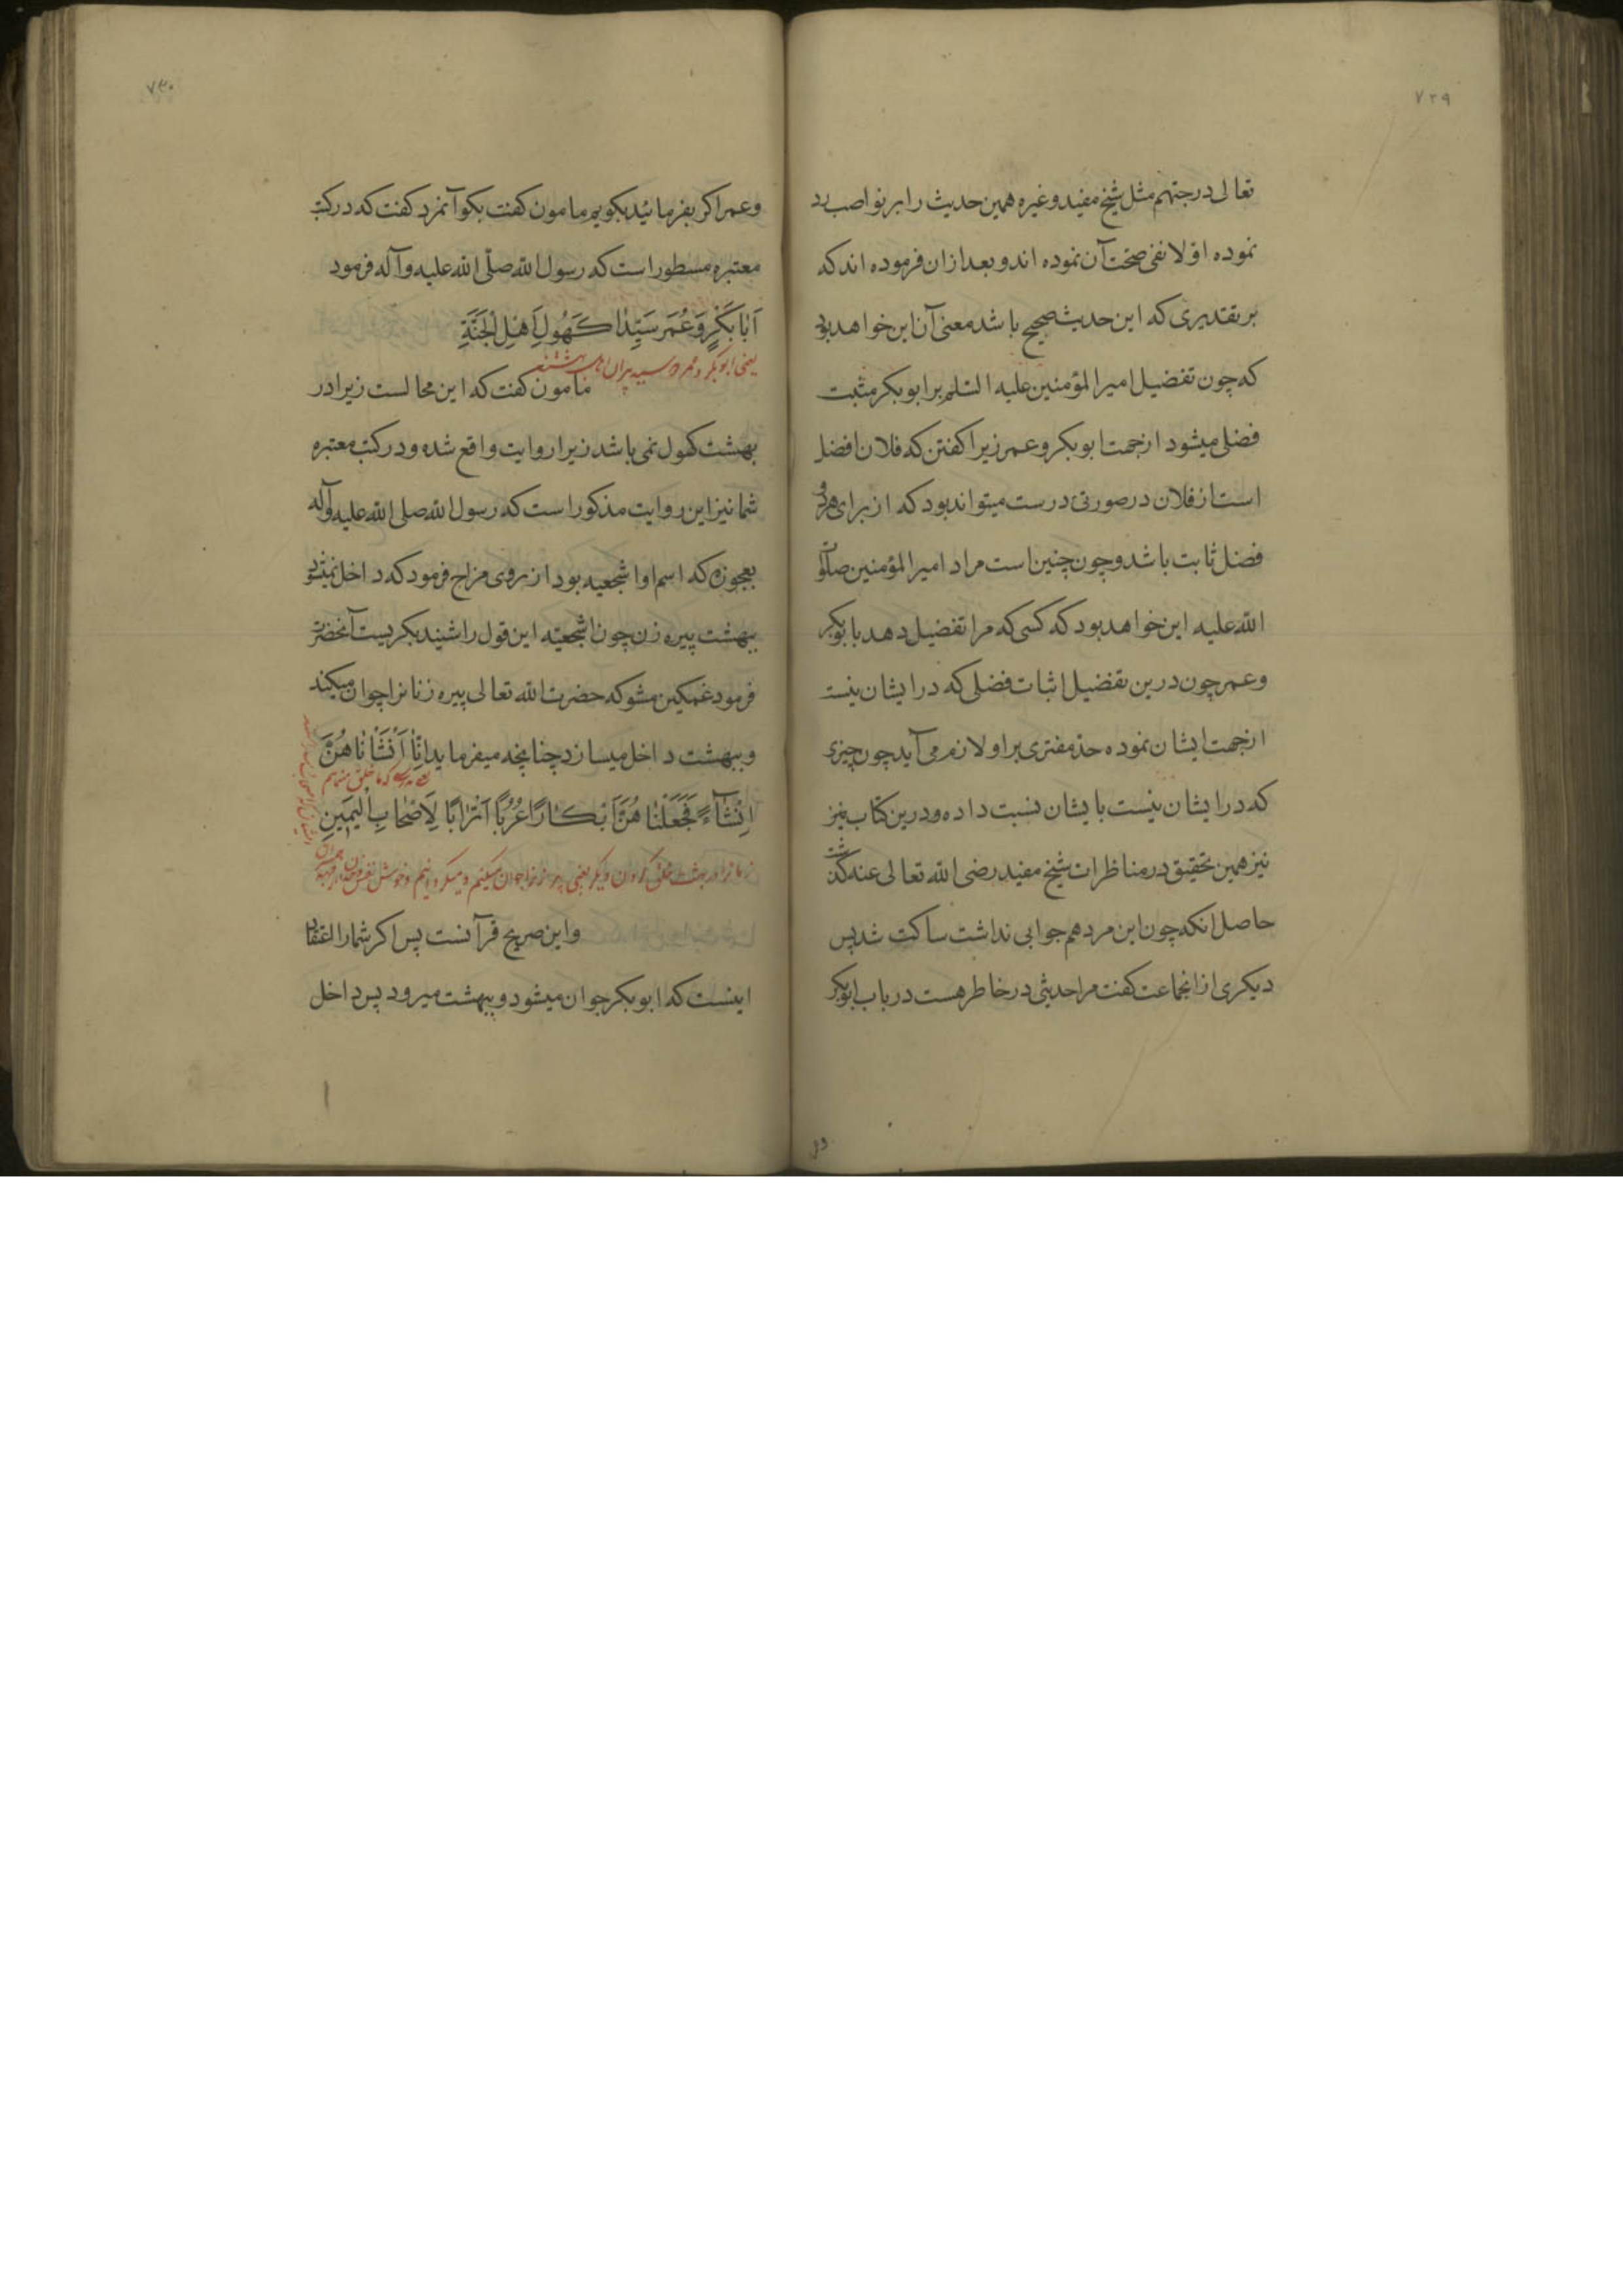 ۷۲۹
تعالی درجتهم مثل شیخ مفید و غیره همین حدیث را بر نواصب رد
نموده اولا نفی صحت آن نموده اند و بعد از ان فرموده اند که
بر تقدیری که این حدیث صحیح باشد معنی آن این خواهد بود
که چون تفضیل امیر المؤمنین علیه السلم بر ابو بکر مثبت
فضلی میشود از جهت ابو بکر و عمر زیرا کفتن که فلان افضل
است از فلان در صورتی درست میتواند بود که از برای هر دو
فضل ثابت باشد و چون چنین است مراد امیر المؤمنین صلوات
الله علیه این خواهد بود که کسی که مرا تفضیل دهد بابو بکر
و عمر چون درین تفضیل اثبات فضلی که در ایشان نیست
از جهت ایشان نموده حد مفتری بر او لازم می آید چون چیزی
که در ایشان نیست بایشان نسبت داده و درین کتاب نیز
نیز همین تحقیق در مناظرات شیخ مفید رضی الله تعالی عنه کذشت
حاصل انکه چون این مرد هم جوابی نداشت ساکت شد پس
دیکری از انجماعت کفت مرا حدیثی در خاطر هست در باب ابو بکر
۷۳۰
و عمر اکر بفرمائید بکویم مامون کفت بکو آنمرد کفت که در کتب
معتبره مسطور است که رسول الله صلّی الله علیه و آله فرمود
اَبَا بَکْرٍ وَ عُمَرَ سَیِّدَا کَهُولِ اَهْلِ الْجَنَّةِ
یعنی ابو بکر و عمر دو سید پیران اهل بهشتند
مامون کفت که این محالست زیرا در
بهشت کهول نمی باشد زیرا روایت واقع شده و در کتب معتبره
شما نیز این روایت مذکور است که رسول الله صلی الله علیه و آله
بعجوزه که اسم او اشجعیه بود از روی مزاح فرمود که داخل نمیشود
ببهشت پیره زن چون اشجعیّه این قول را شنید بکریست آنحضرت
فرمود غمکین مشو که حضرت الله تعالی پیره زنانرا جوان میکند
و ببهشت داخل میسازد چنانچه میفرماید اِنَّا اَنْشَانَا هُنَّ
که ما خلق
اِنْشَآءً فَجَعَلْنَا هُنَّ اَبْکَارًا عُرُبًا اَتْرَابًا لِاَصْحَابِ الْیَمِینِ
زنانرا در بهشت خلق کردن دیکر یعنی پیره زنانرا جوان میکنیم و میکردانیم
و این صریح قرآنست پس اکر شما را اعتقاد
اینست که ابو بکر جوان میشود و ببهشت میرود پس داخل